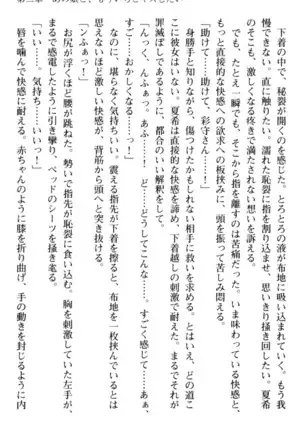 第三章 あの娘と、もういちどキスしたい
下着の中で、秘裂が開くのを感じた。とろとろの液が布地に吸い込まれていく。もう我
慢できない。直に触りたい。濡れた恥裂に指を割り込ませ、思いきり掻き回したい。夏希
のそこも、激しくなる疼きで、満たされない想いを訴える。
でも、たとえ一瞬でも、そこから指を離すのは苦痛だった。いま味わっている快感と、
もっと直接的な快感への欲求への板挟みに、頭を振って苦しみ悶える。
「助けて……助けて、彩守さん……っ」
身勝手と知りながら、傷つけたかもしれない相手に救いを求める。とはいえ、どの道こ
こに彼女はいない。夏希は直接的な快感を諦め、下着越しの刺激で耐えた。まるでそれが
罪滅ぼしであるように、都合のいい解釈をして。
「んっく、んふぁっ。あふ……！ど……どうしてこんな……。すごく感じて……あぁ、
だめ……おかしくなる……っ！」
なのに、堪らなく気持ちいい。震える指先が下着を擦ると、布地を一枚挟んでいるとは
思えないほどの快感が、背筋から頭へと突き抜ける。
「ンふぁっ！」
お尻が浮くほど腰が跳ねた。勢いで指先が恥裂に食い込む。胸を刺激していた左手が、
感電したように引き攣り、ベッドのシーツを掻き毟る。
「いい……。気持ち……いいっ！」
唇を噛んで快感に耐える。赤ちゃんのように膝を折り曲げ、手の動きを封じるように内